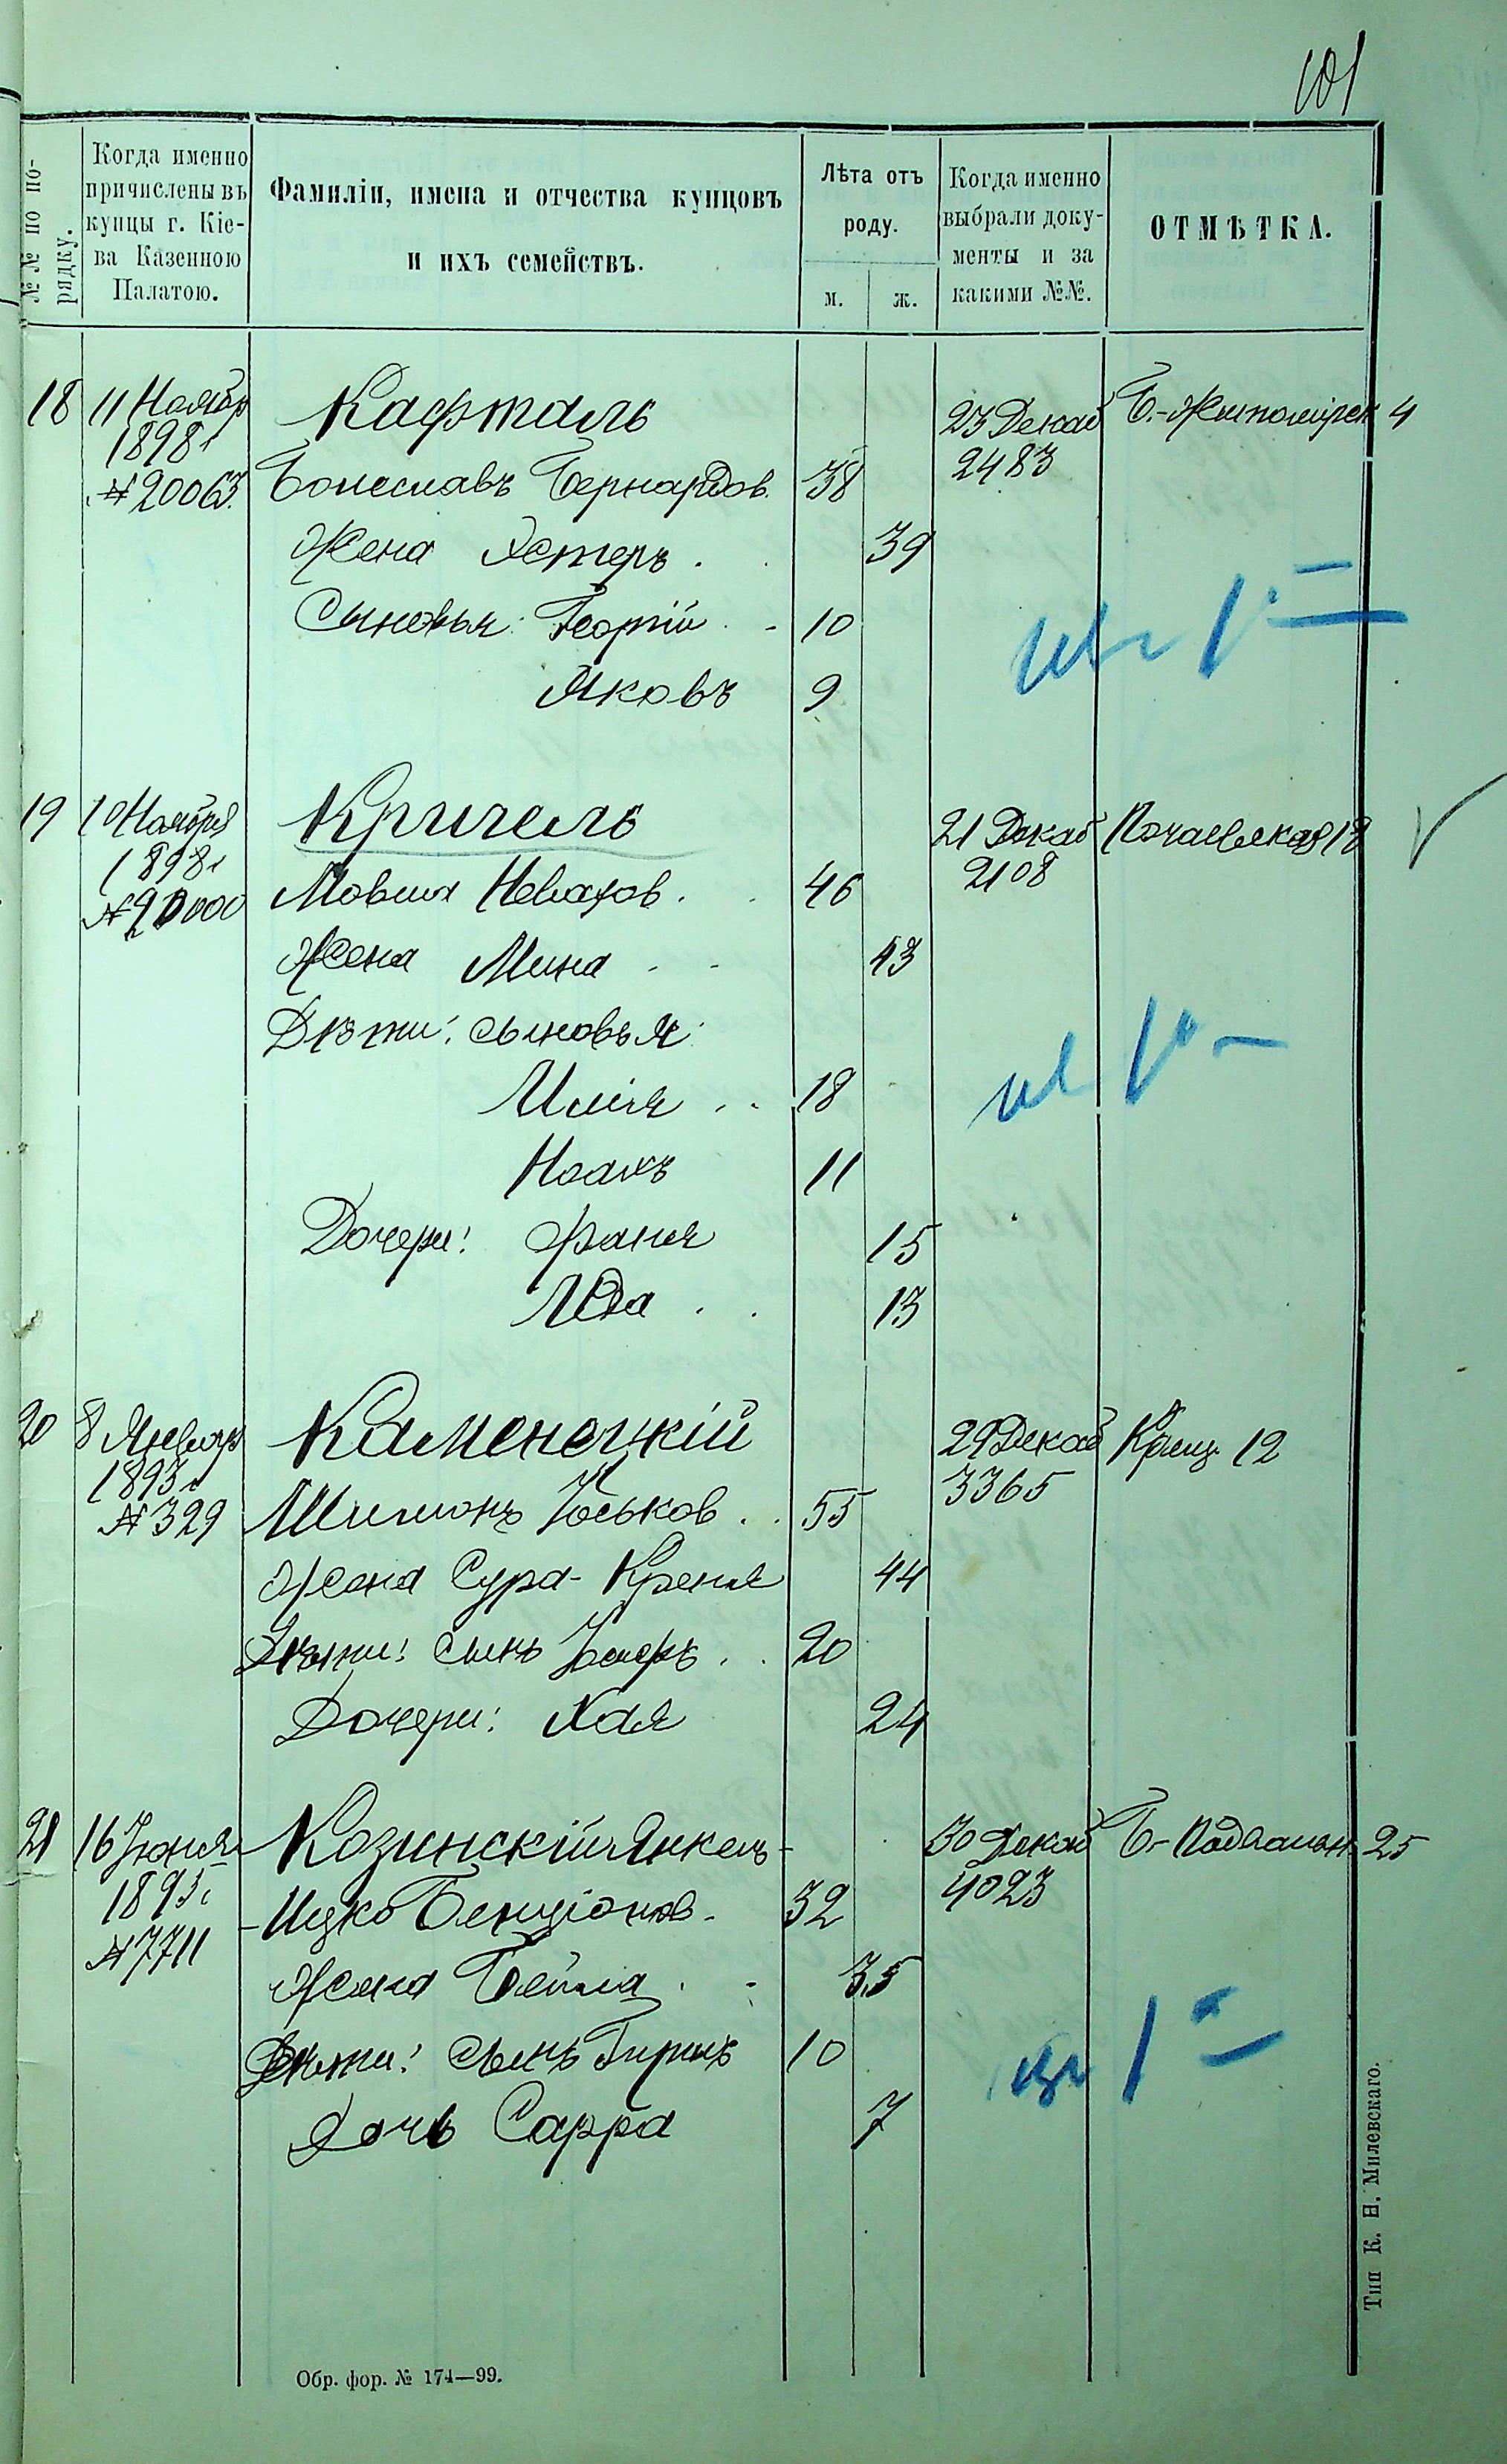 101
№№ по по-
рядку.
Когда именно
причислены въ
купцы г. Кіе-
ва Казенною
Палатою.
Фамиліи, имена и отчества купцовъ
и ихъ семействъ.
Лѣта отъ
роду.
м. ж.
Когда именно
выбрали доку-
менты и за
какими №№.
ОТМѢТКА.
18 11 Ноябр Кафталь 23 Декаб Б.-Житомірск 4
1898 г 2483
№ 20063. Болеславъ Бернардов. 38
Жена Эстеръ . . 39
Сыновья: Георгій . - 10
Яковъ 9
19 10 Ноября Кричель 21 Декаб Почаевская 13
1898 г 2108
№ 20000 Мовша Невахов. . 46
Жена Мина . - 43
Дѣти: сыновья:
Илія . . 18
Ноахъ 11
Дочери: Фаня 15
Ида . . 13
20 8 Январ Каменецкій 29 Декаб Крещ. 12
1893 г 3365
№ 329 Шимонъ Юськов . . 55
Жена Сура-Креня 44
Дѣти: сынъ . . 20
Дочери: Хая 24
21 16 Іюня Козинскій Янкель- 30 Декаб Б-Подвальн. 25
1895 г 4023
№ 7711 -Ицко Бенціонов. 32
Жена Бейла . - 35
Дѣти: сынъ Гиршъ 10
Дочь Сарра 7
Обр. фор. № 174—99.
Тип К. Н. Милевскаго.